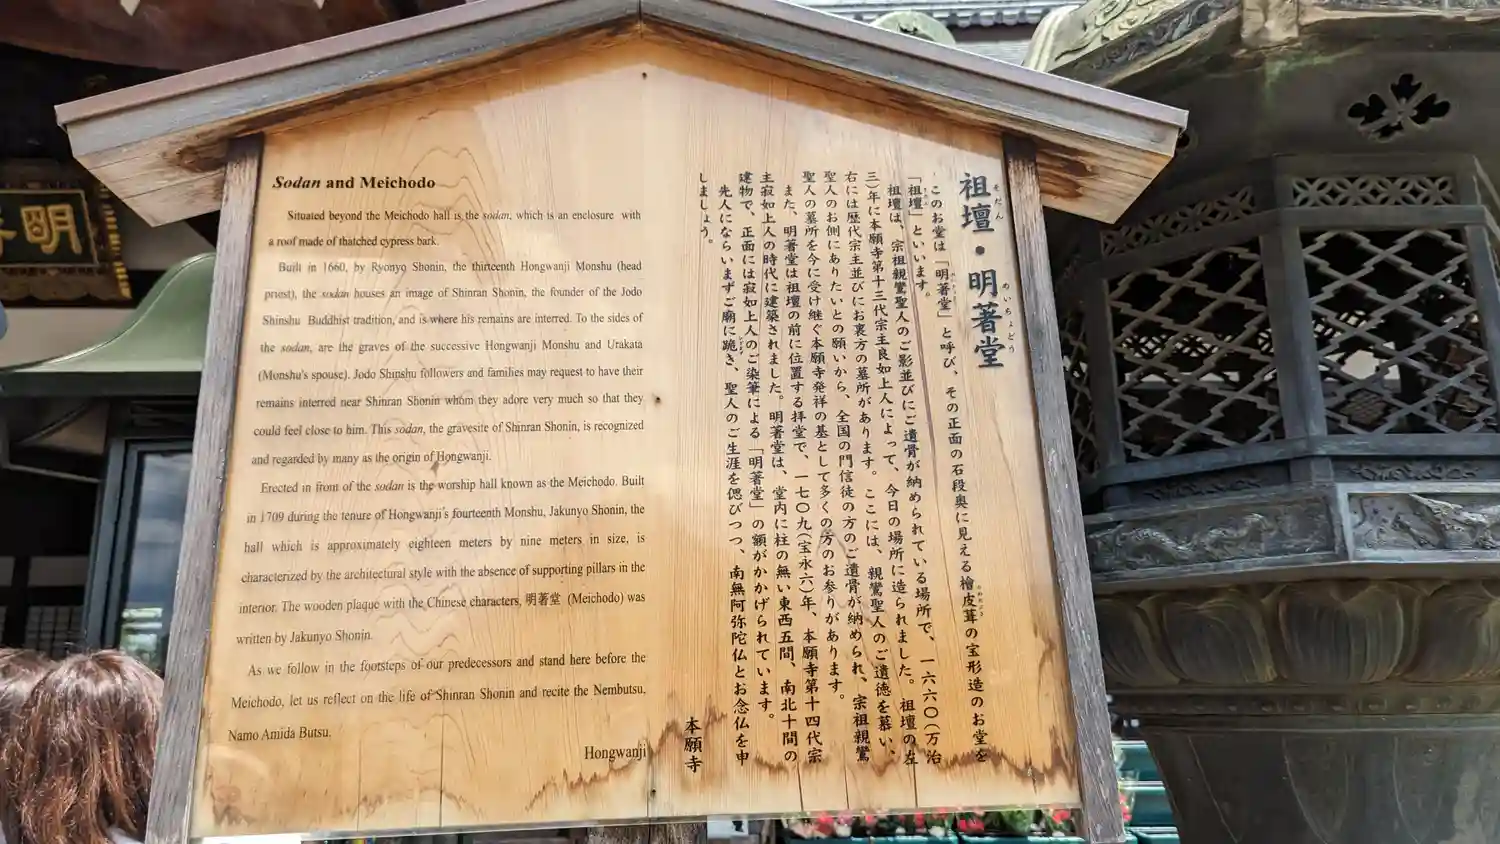 Sodan and Meichodo
Situated beyond the Meichodo hall is the sodan, which is an enclosure with
a roof made of thatched cypress bark.
Built in 1660, by Ryonyo Shonin, the thirteenth Hongwanji Monshu (head
priest), the sodan houses an image of Shinran Shonin, the founder of the Jodo
Shinshu Buddhist tradition, and is where his remains are interred. To the sides of
the sodan, are the graves of the successive Hongwanji Monshu and Urakata
(Monshu's spouse). Jodo Shinshu followers and families may request to have their
remains interred near Shinran Shonin whom they adore very much so that they
could feel close to him. This sodan, the gravesite of Shinran Shonin, is recognized
and regarded by many as the origin of Hongwanji.
Erected in front of the sodan is the worship hall known as the Meichodo. Built
in 1709 during the tenure of Hongwanji's fourteenth Monshu, Jakunyo Shonin, the
hall which is approximately eighteen meters by nine meters in size, is
characterized by the architectural style with the absence of supporting pillars in the
interior. The wooden plaque with the Chinese characters, 明著堂 (Meichodo) was
written by Jakunyo Shonin.
As we follow in the footsteps of our predecessors and stand here before the
Meichodo, let us reflect on the life of Shinran Shonin and recite the Nembutsu,
Namo Amida Butsu.
Hongwanji
祖壇・明著堂
そだん めいちょどう
このお堂は「明著堂」と呼び、その正面の石段奥に見える檜皮葺の宝形造のお堂を
「祖壇」といいます。
祖壇は、宗祖親鸞聖人のご影並びにご遺骨が納められている場所で、一六六〇(万治
三)年に本願寺第十三代宗主良如上人によって、今日の場所に造られました。祖壇の左
右には歴代宗主並びにお裏方の墓所があります。ここには、親鸞聖人のご遺徳を慕い、
聖人のお側にありたいとの願いから、全国の門信徒の方のご遺骨が納められ、宗祖親鸞
聖人の墓所を今に受け継ぐ本願寺発祥の基として多くの方のお参りがあります。
また、明著堂は祖壇の前に位置する拝堂で、一七〇九(宝永六)年、本願寺第十四代宗
主寂如上人の時代に建築されました。明著堂は、堂内に柱の無い東西五間、南北十間の
建物で、正面には寂如上人のご染筆による「明著堂」の額がかかげられています。
先人にならいまずご廟に跪き、聖人のご生涯を偲びつつ、南無阿弥陀仏とお念仏を申
しましょう。
本願寺
明